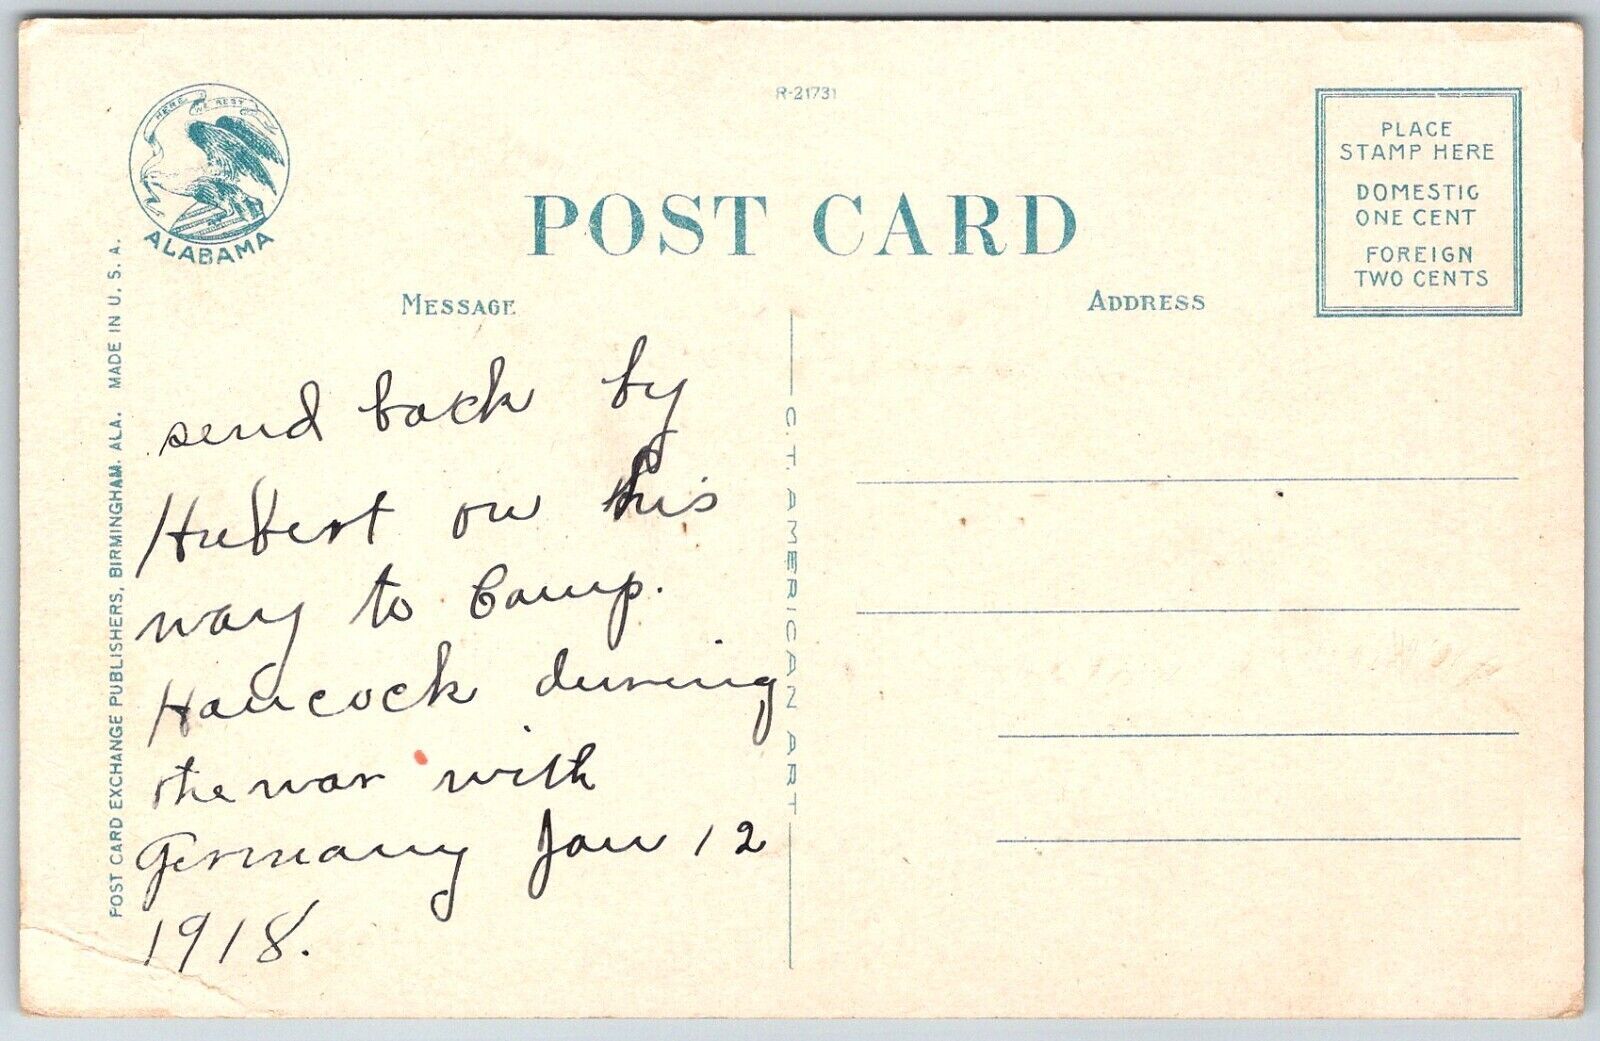 R-21731
HERE WE REST
ALABAMA
POST CARD
PLACE
STAMP HERE
DOMESTIC
ONE CENT
FOREIGN
TWO CENTS
MESSAGE
ADDRESS
send back by
Hubert on his
way to Camp.
Hancock during
the war with
Germany Jan 12
1918.
C.T. AMERICAN ART
POST CARD EXCHANGE PUBLISHERS, BIRMINGHAM, ALA. MADE IN U. S. A.